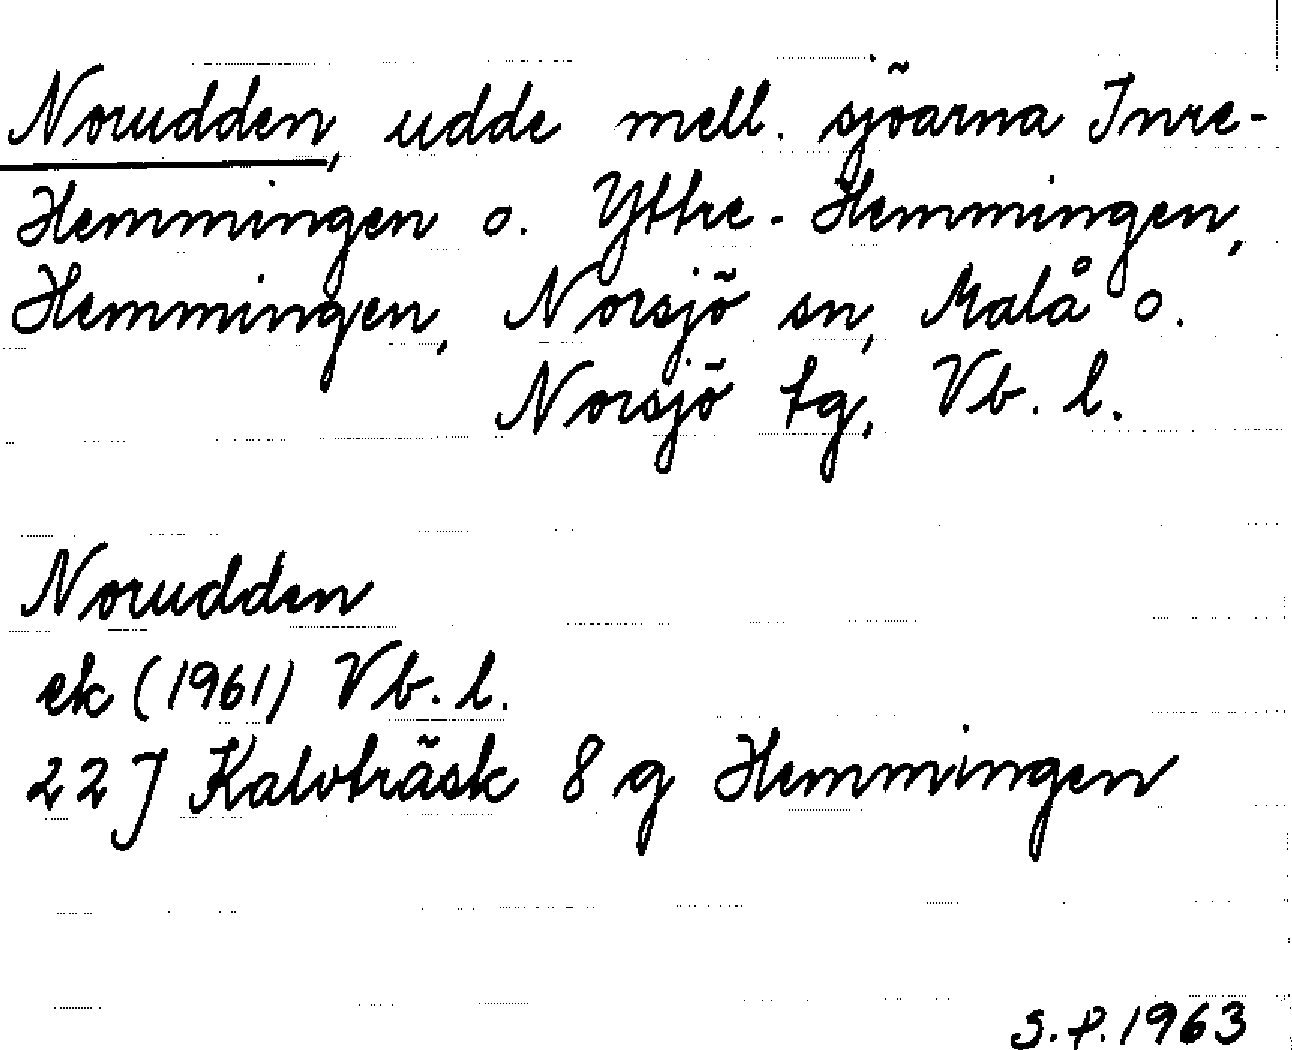 Norudden, udde mell. sjöarna Inre-
Hemmingen o. Yttre-Hemmingen,
Hemmingen, Norsjö sn, Malå o.
Norsjö tg, Vb. l.
Norudden
ek (1961) Vb. l.
22 J Kalvträsk 8 g Hemmingen
S.P. 1963